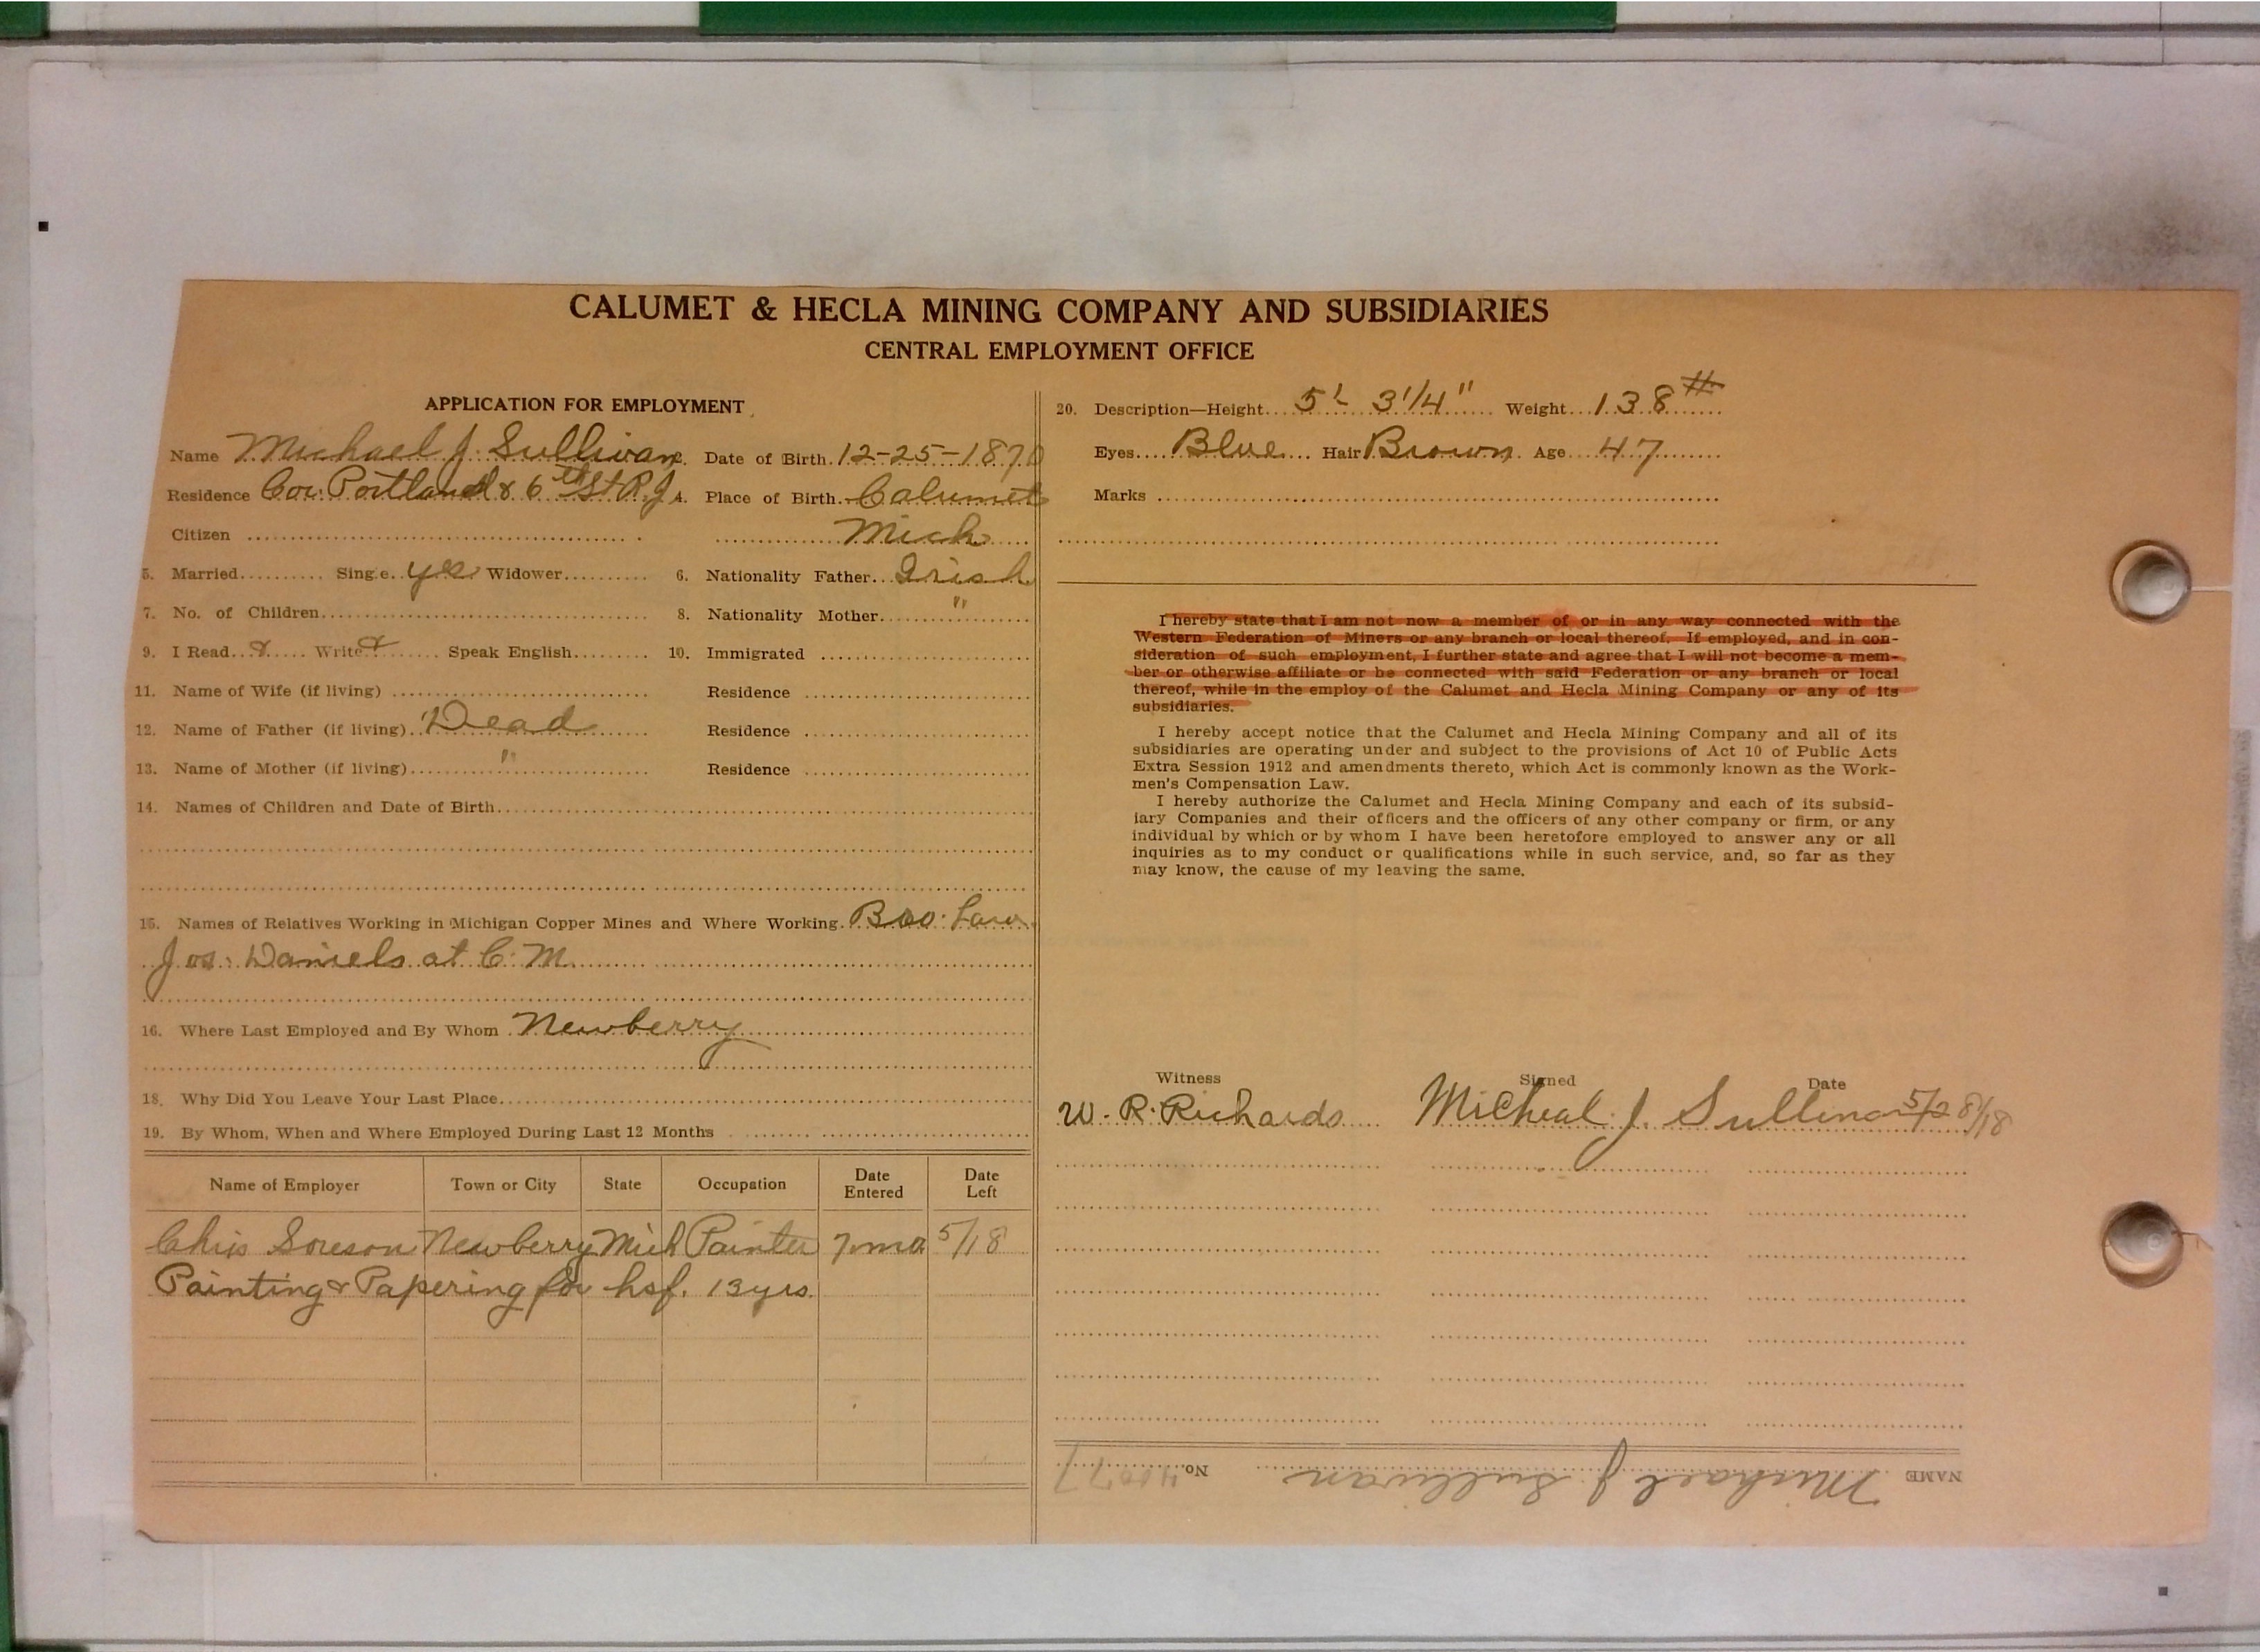 CALUMET & HECLA MINING COMPANY AND SUBSIDIARIES
CENTRAL EMPLOYMENT OFFICE
APPLICATION FOR EMPLOYMENT
Name Michael J. Sullivan Date of Birth 12-25-1870
Residence Cor. Portland & 6th St R.J. Place of Birth Calumet
Citizen Mich
5. Married Single yes Widower 6. Nationality Father Irish
7. No. of Children 8. Nationality Mother "
9. I Read Write Speak English 10. Immigrated
11. Name of Wife (if living) Residence
12. Name of Father (if living) Dead Residence
13. Name of Mother (if living) " Residence
14. Names of Children and Date of Birth
15. Names of Relatives Working in Michigan Copper Mines and Where Working. Bro. Law
Jos. Daniels at C. M.
16. Where Last Employed and By Whom Newberry
18. Why Did You Leave Your Last Place
19. By Whom, When and Where Employed During Last 12 Months
Name of Employer Town or City State Occupation Date Entered Date Left
Chris Soreson Newberry Mich Painter 7 mo 5/18
Painting & Papering for hsf. 13 yrs.
20. Description—Height 5' 3 1/4" Weight 138#
Eyes Blue Hair Brown Age 47
Marks
I hereby state that I am not now a member of or in any way connected with the
Western Federation of Miners or any branch or local thereof. If employed, and in con-
sideration of such employment, I further state and agree that I will not become a mem-
ber or otherwise affiliate or be connected with said Federation or any branch or local
thereof, while in the employ of the Calumet and Hecla Mining Company or any of its
subsidiaries.
I hereby accept notice that the Calumet and Hecla Mining Company and all of its
subsidiaries are operating under and subject to the provisions of Act 10 of Public Acts
Extra Session 1912 and amendments thereto, which Act is commonly known as the Work-
men's Compensation Law.
I hereby authorize the Calumet and Hecla Mining Company and each of its subsid-
iary Companies and their officers and the officers of any other company or firm, or any
individual by which or by whom I have been heretofore employed to answer any or all
inquiries as to my conduct or qualifications while in such service, and, so far as they
may know, the cause of my leaving the same.
Witness Signed Date
W. R. Richards Micheal J. Sullina 5/28/18
NAME Michael J. Sullivan No.